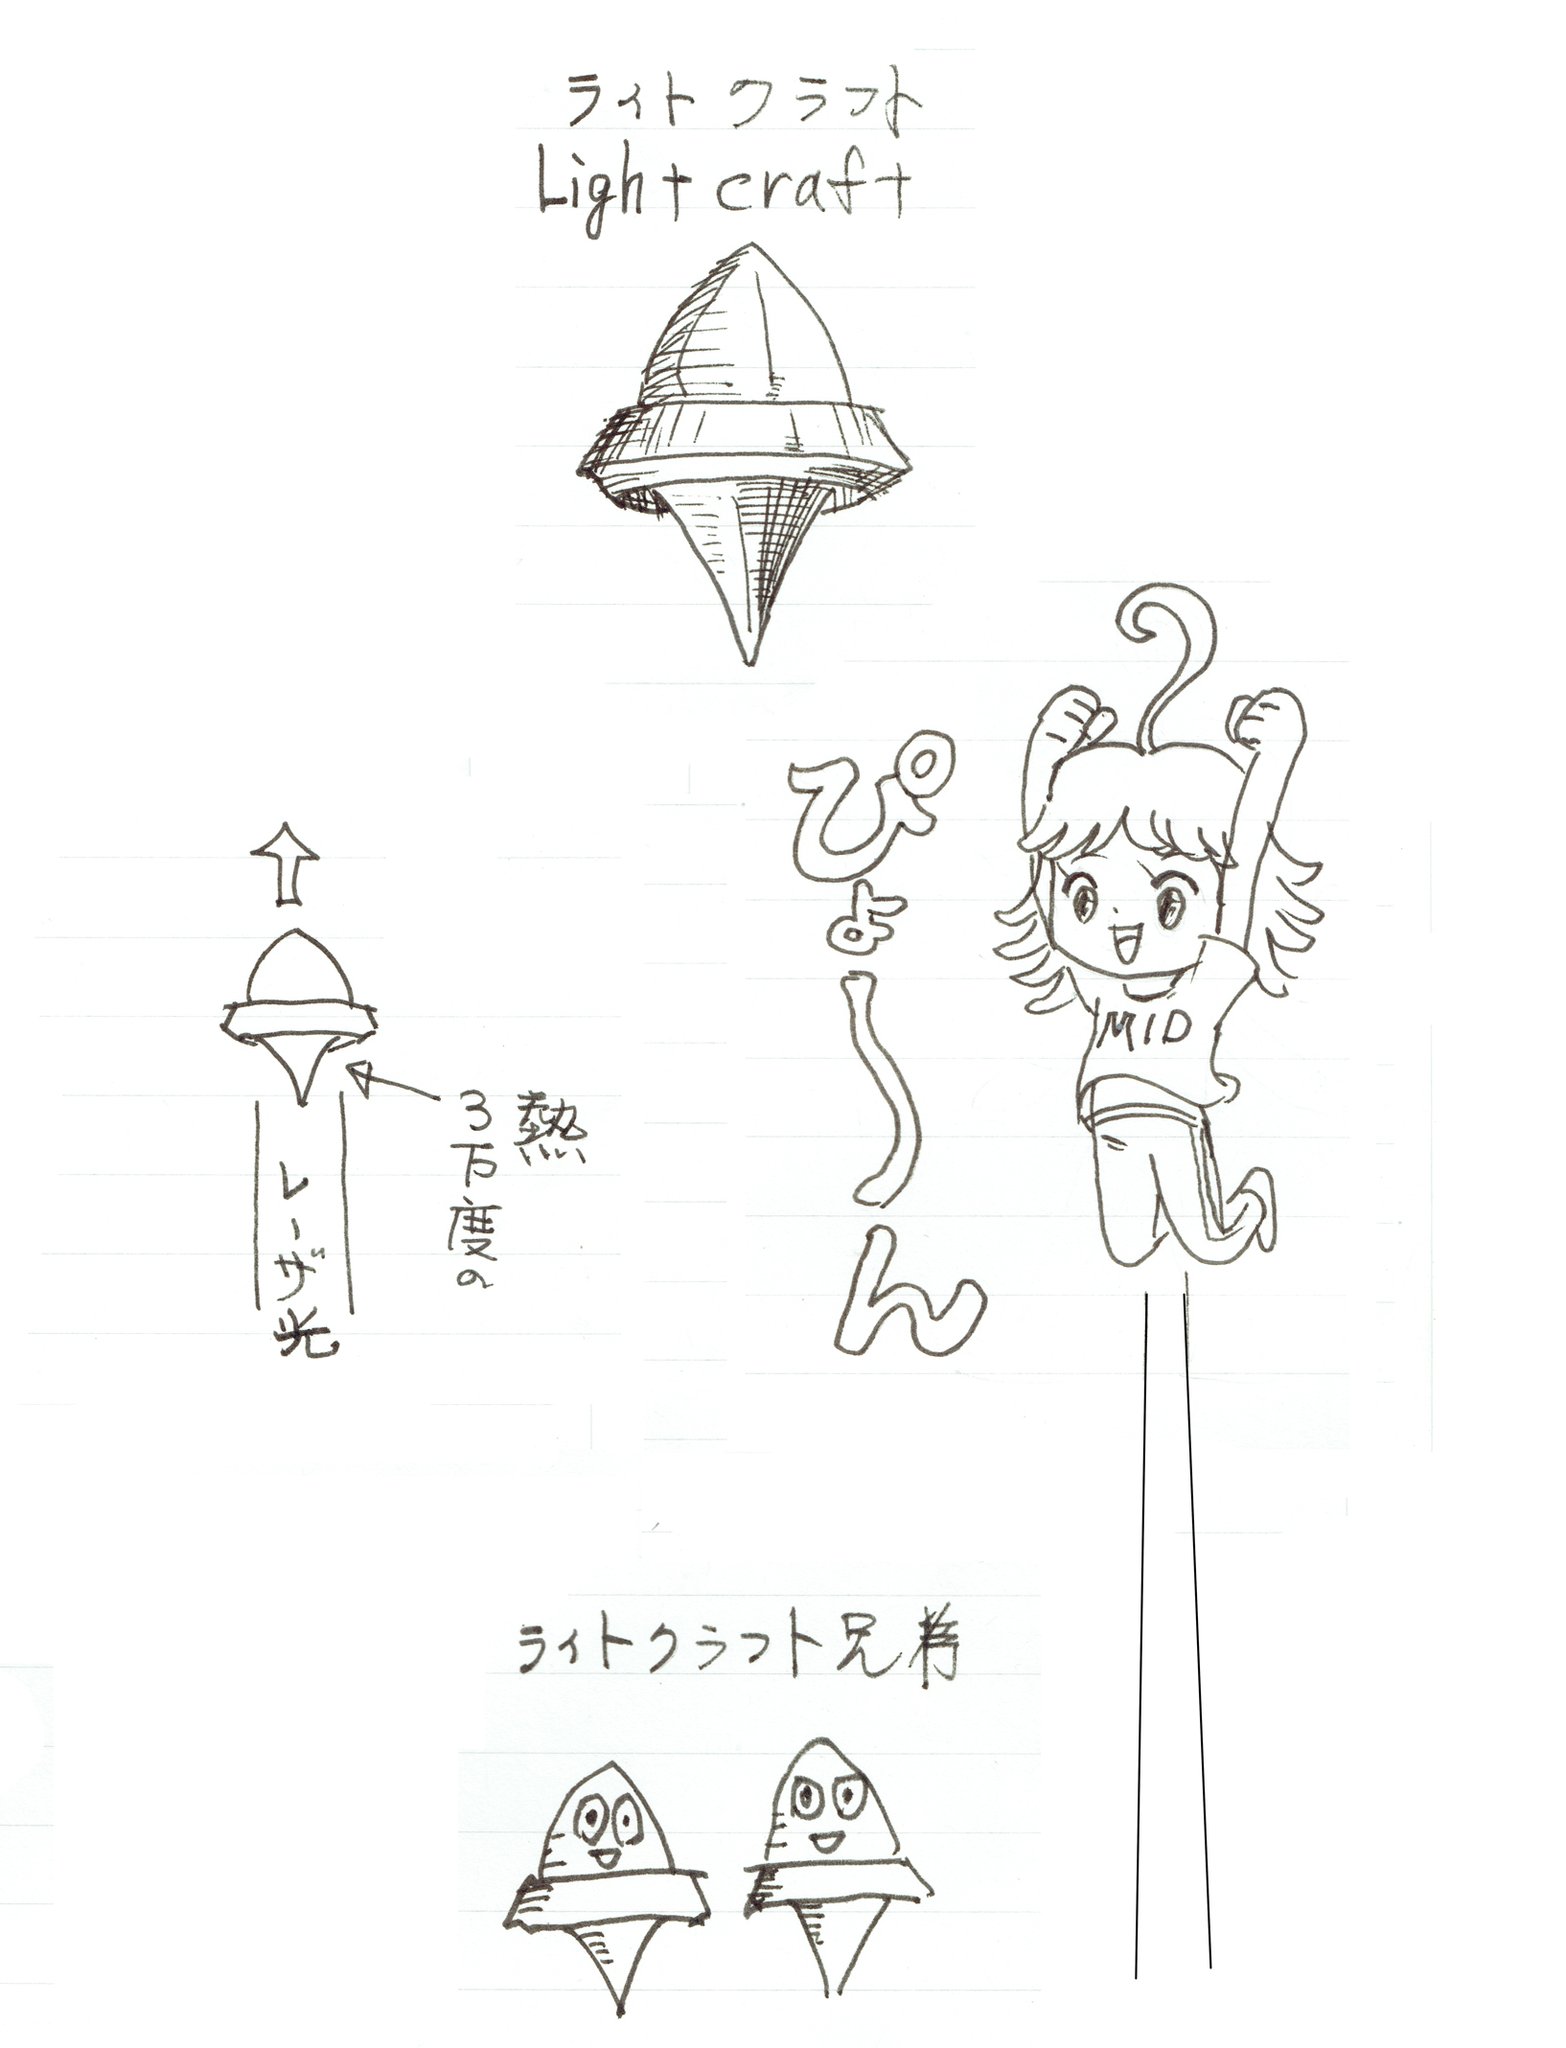 ライトクラフト
Light craft
ぴよーん
MID
3万度の
熱
レーザ光
ライトクラフト兄弟